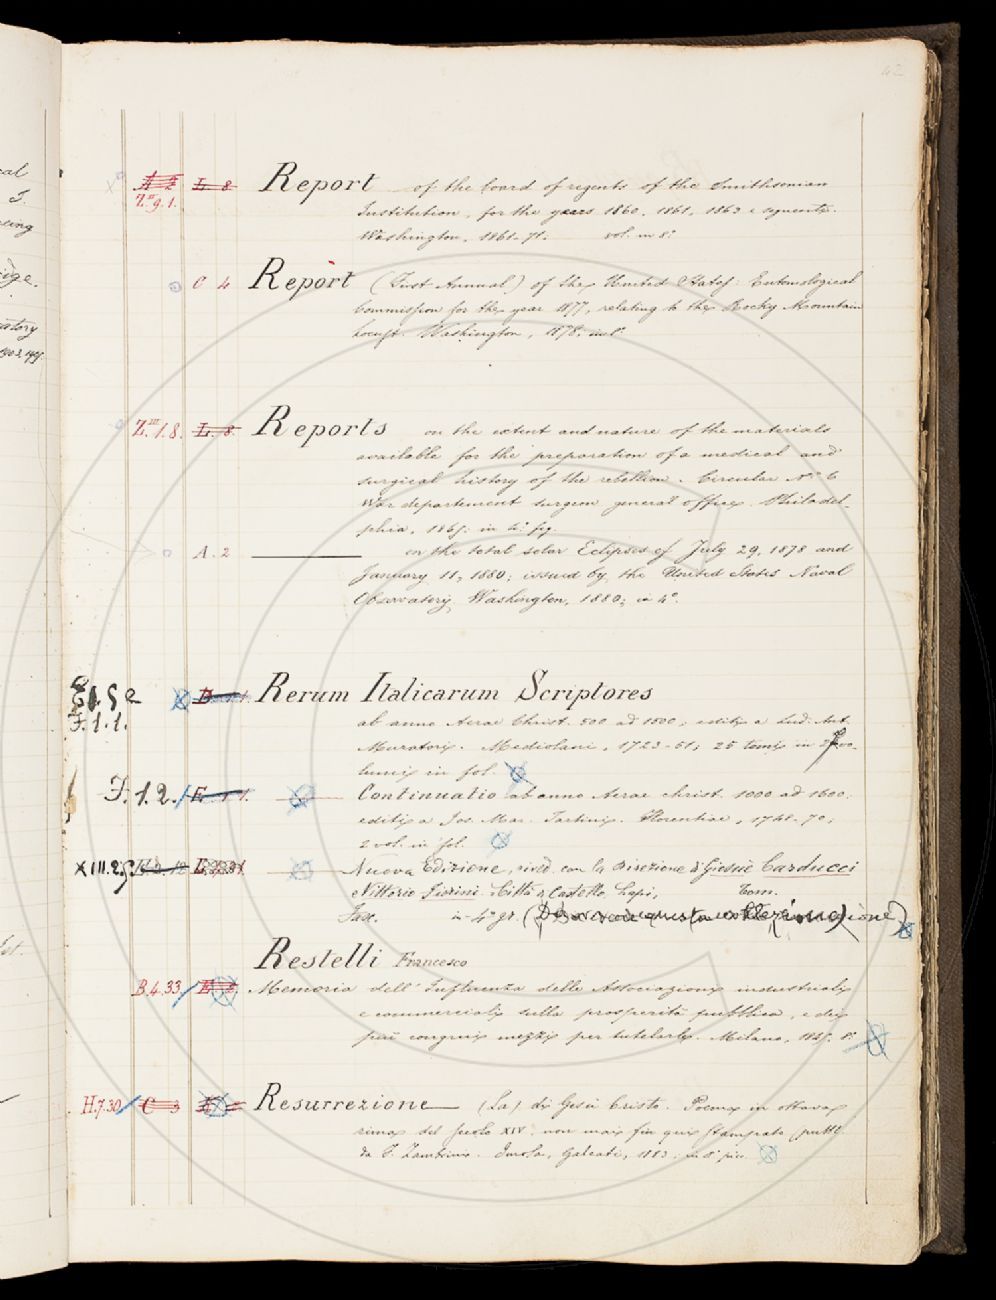 42
A 2 L. 8 Report of the board of regents of the Smithsonian
Z.II g. 1. Institution, for the years 1860, 1861, 1863 e seguenti.
Washington, 1861-71; vol. in 8.°
C 4 Report (First Annual) of the United States Entomological
Commission for the year 1877, relating to the Rocky Mountain
Locust. Washington, 1878, in 8°
Z.III 1. 8. L. 8. Reports on the extent and nature of the materials
available for the preparation of a medical and
surgical history of the rebellion. Circular N.° 6
War departement surgeon general office. Philadel-
phia, 1865. in 4.° fig.
A. 2 on the total solar Eclipses of July 29, 1878 and
January 11, 1880; issued by the United States Naval
Observatory, Washington, 1880; in 4°.
Rerum Italicarum Scriptores
F. 1. 1.
ab anno Aerae Christ. 500 ad 1500; editi a Lud. Ant.
Muratori. Mediolani, 1723-51; 25 tomi in
in fol.
F. 1. 2. Continuatio ab anno Aerae Christ. 1000 ad 1600;
edita a Jos. Mar. Tartini. Florentiae, 1748-70;
2 vol. in fol.
XIII. 2. Nuova Edizione, con la Direzione di Giosuè Carducci
e Vittorio Fiorini. Città di Castello, Lapi, tom.
Fasc. in-4° gr.
Restelli Francesco
B. 4. 33 Memoria dell' Influenza delle Associazioni industriali
e commerciali sulla prosperità pubblica, e dei
più congrui mezzi per tutelarla. Milano, 8.°
H. 7. 30 C 3 Resurrezione (La) di Gesù Cristo. Poema in ottava
rima del secolo XIV. non mai fin qui stampato (pubb.
da F. Zambrini. Imola, Galeati, 1883. in 8.° picc.